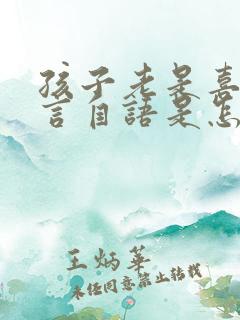 孩子老是喜
言自語是怎
王炳華
未经同意禁止转载